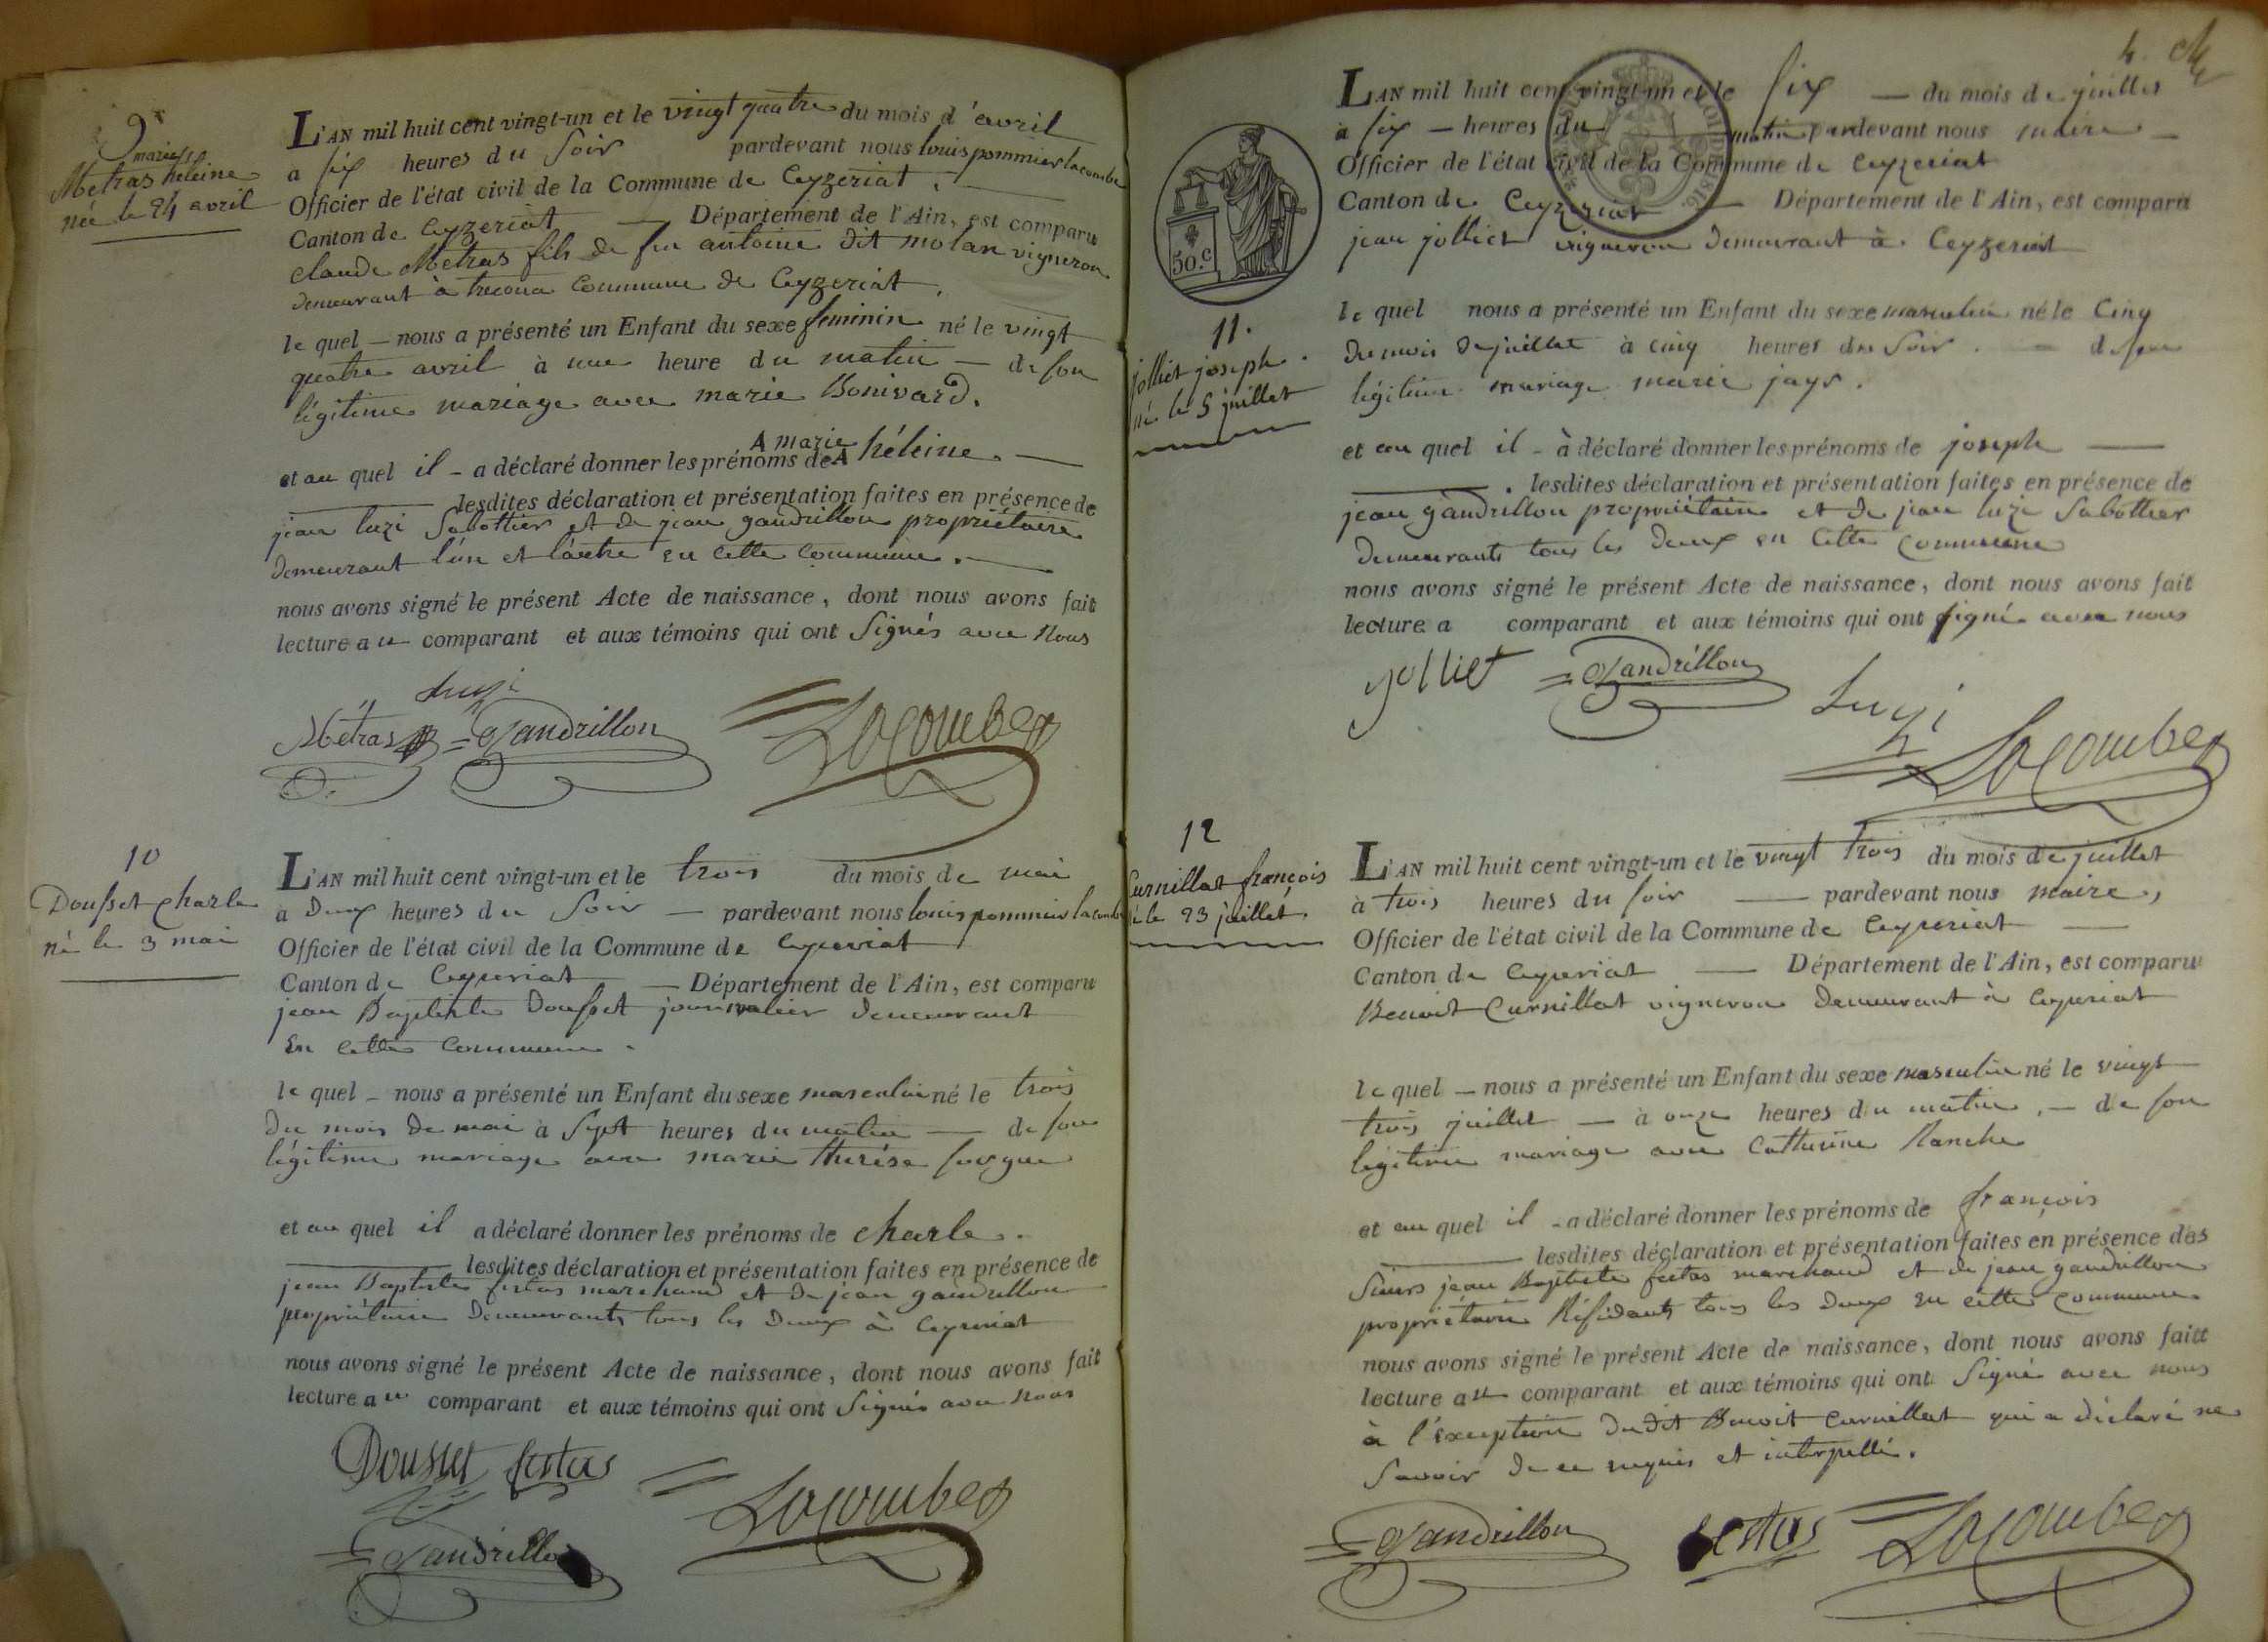 9e
marie
Metras héleine
née le 24 avril
L'AN mil huit cent vingt-un et le vingt quatre du mois d'avril
a six heures du Soir pardevant nous louis pommier lacombe
Officier de l'état civil de la Commune de Ceyzeriat.
Canton de Ceyzeriat Département de l'Ain, est comparu
Claude Metras fils de feu antoine dit molan vigneron
demeurant à Commune de Ceyzeriat,
le quel nous a présenté un Enfant du sexe feminin né le vingt
quatre avril à une heure du matin de son
légitime mariage avec marie Bonivard.
marie
et au quel il a déclaré donner les prénoms de héleine.
lesdites déclaration et présentation faites en présence de
jean luzi Sabottier et de jean gandrillon propriétaire
demeurant l'un et l'autre en cette commune.
nous avons signé le présent Acte de naissance, dont nous avons fait
lecture au comparant et aux témoins qui ont Signés avec Nous
Luzi
Métras Gandrillon Lacombe
10
Dousset charle
né le 3 mai
L'AN mil huit cent vingt-un et le trois du mois de mai
a Deux heures du Soir pardevant nous louis pommier lacombe
Officier de l'état civil de la Commune de Ceyzeriat
Canton de Ceyzeriat Département de l'Ain, est comparu
jean Baptiste Dousset journalier demeurant
En cette Commune.
le quel nous a présenté un Enfant du sexe masculin né le trois
du mois de mai à Sept heures du matin de son
légitime mariage avec marie thérése
et au quel il a déclaré donner les prénoms de charle.
lesdites déclaration et présentation faites en présence de
jean Baptiste festas marchand et de jean gandrillon
propriétaire demeurants tous les deux à Ceyzeriat
nous avons signé le présent Acte de naissance, dont nous avons fait
lecture au comparant et aux témoins qui ont Signés avec nous
Dousset festas
Gandrillon Lacombe
4.
L'AN mil huit cent vingt-un et le six du mois de juillet
à six heures du matin pardevant nous maire
Officier de l'état civil de la Commune de Ceyzeriat
Canton de Ceyzeriat Département de l'Ain, est comparu
jean jolliet vigneron demeurant à Ceyzeriat
50.c
11.
jolliet joseph.
né le 5 juillet
le quel nous a présenté un Enfant du sexe masculin né le Cinq
du mois de juillet à cinq heures du Soir. de son
légitime mariage marie jays.
et au quel il à déclaré donner les prénoms de joseph
lesdites déclaration et présentation faites en présence de
jean gandrillon propriétaire et de jean luzi Sabottier
demeurants tous les deux en cette commune
nous avons signé le présent Acte de naissance, dont nous avons fait
lecture a comparant et aux témoins qui ont signé avec nous
jolliet Gandrillon
Luzi
Lacombe
12
Curnillat françois
né le 23 juillet.
L'AN mil huit cent vingt-un et le vingt trois du mois de juillet
à trois heures du soir pardevant nous maire,
Officier de l'état civil de la Commune de Ceyzeriat
Canton de Ceyzeriat Département de l'Ain, est comparu
Benoit Curnillat vigneron demeurant à Ceyzeriat
le quel nous a présenté un Enfant du sexe masculin né le vingt
trois juillet à onze heures du matin, de son
légitime mariage avec Catherine Ranche
et au quel il a déclaré donner les prénoms de françois
lesdites déclaration et présentation faites en présence des
Sieurs jean Baptiste festas marchand et de jean gandrillon
propriétaire Résidants tous les deux en cette commune
nous avons signé le présent Acte de naissance, dont nous avons fait
lecture au comparant et aux témoins qui ont Signé avec nous
à l'exception dudit Benoit Curnillat qui a déclaré ne
Savoir de ce requis et interpellé.
Gandrillon festas Lacombe